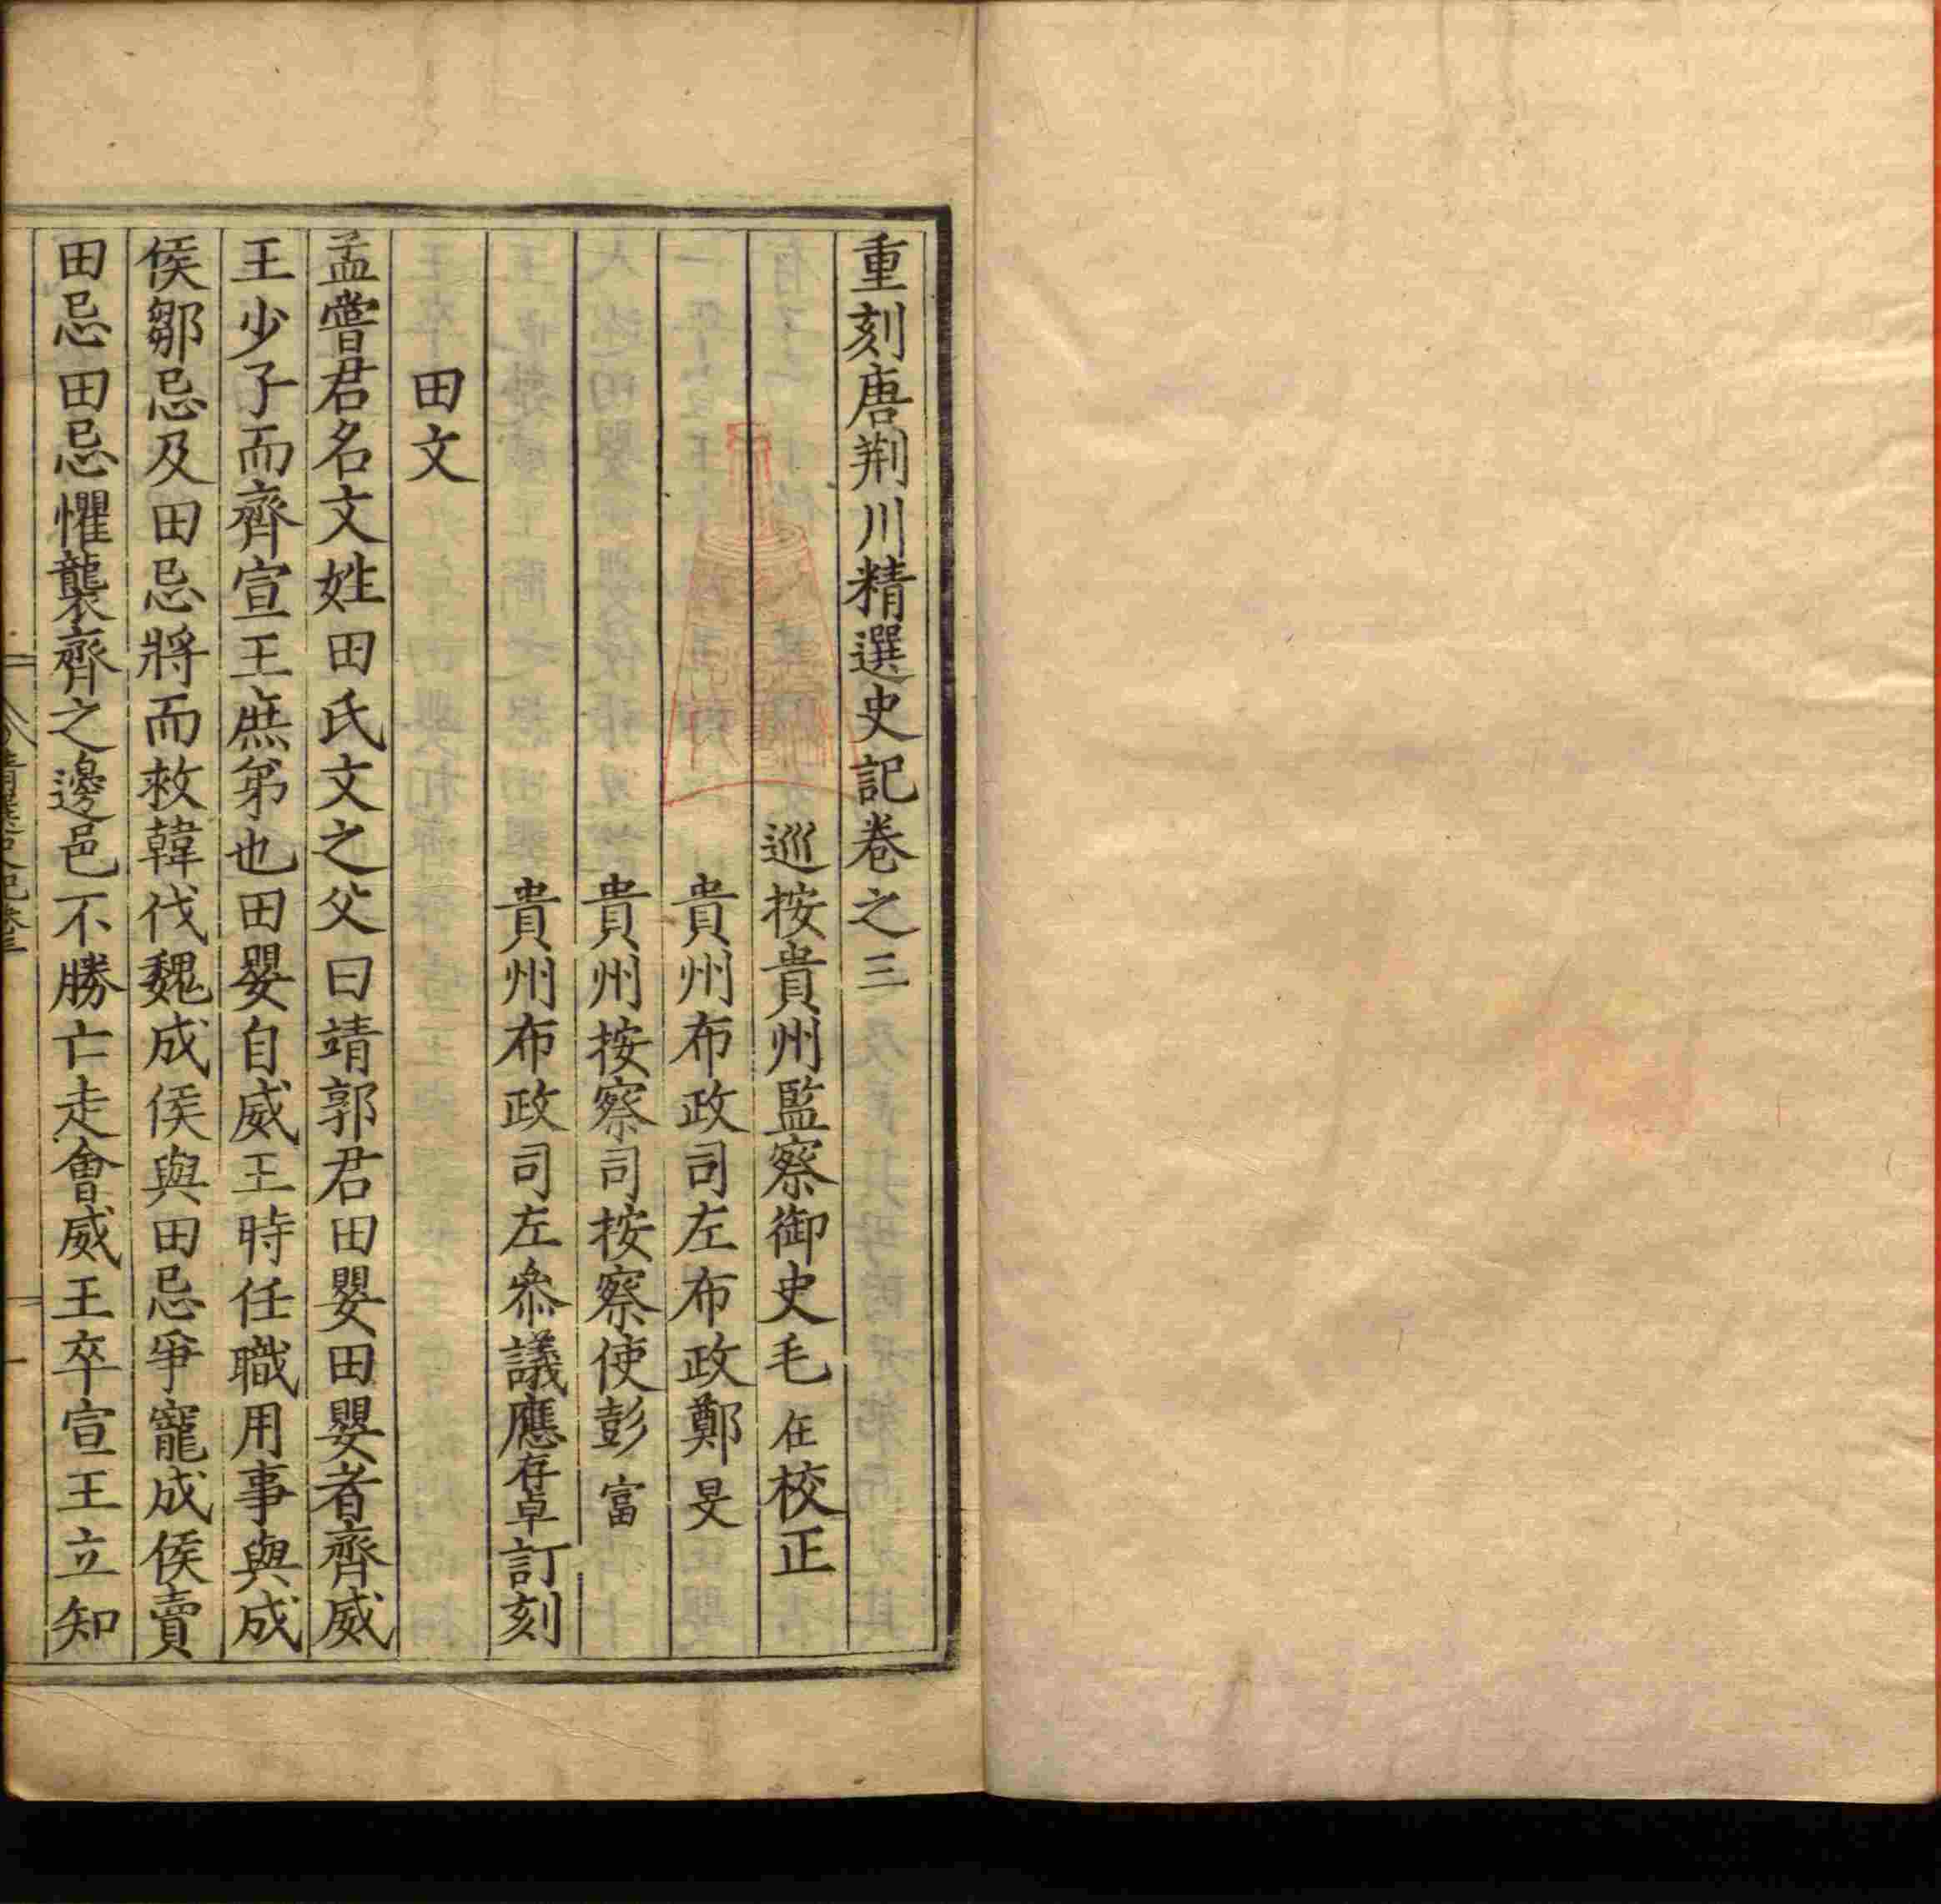 重刻唐荊川精選史記卷之三
巡按貴州監察御史毛在校正
貴州布政司左布政鄭旻
貴州按察司按察使彭富
貴州布政司左叅議應存卓訂刻
田文
孟嘗君名文姓田氏文之父曰靖郭君田嬰田嬰者齊威
王少子而齊宣王庶弟也田嬰自威王時任職用事與成
侯鄒忌及田忌將而救韓伐魏成侯與田忌爭寵成侯賣
田忌田忌懼襲齊之邊邑不勝亡走會威王卒宣王立知
精選史記卷三
一